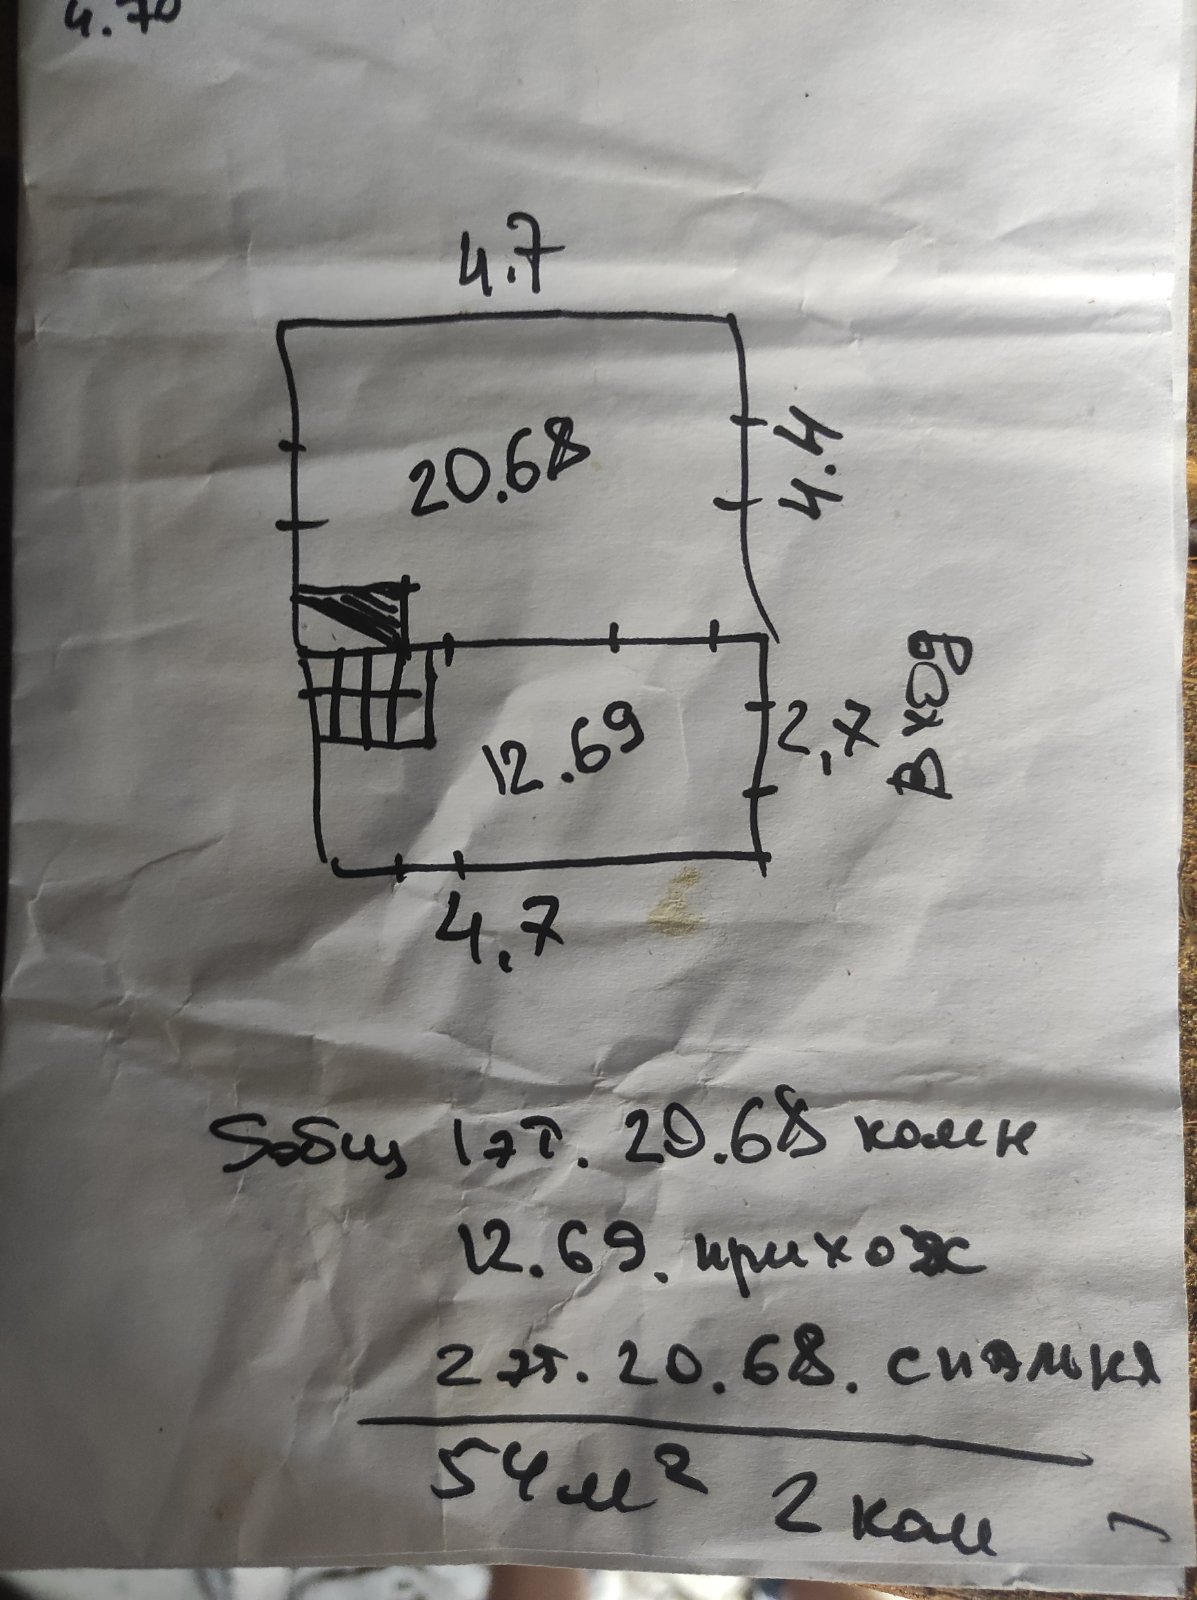 4.70
4.7
20.68
4.4
12.69
2,7
вход
4,7
Sобщ 1 эт. 20.68 комн
12.69. прихож
2 эт. 20.68. спальня
54 м² 2 ком